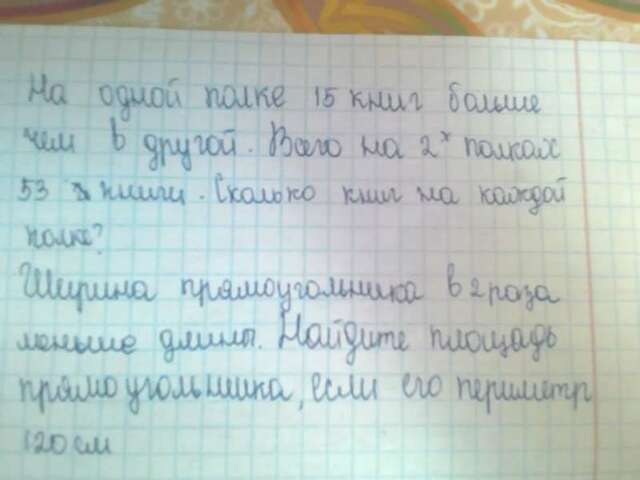 На одной полке 15 книг больше
чем в другой. Всего на 2х полках
53 книги. Сколько книг на каждой
полке?
Ширина прямоугольника в 2 раза
меньше длины. Найдите площадь
прямоугольника, если его периметр
120 см